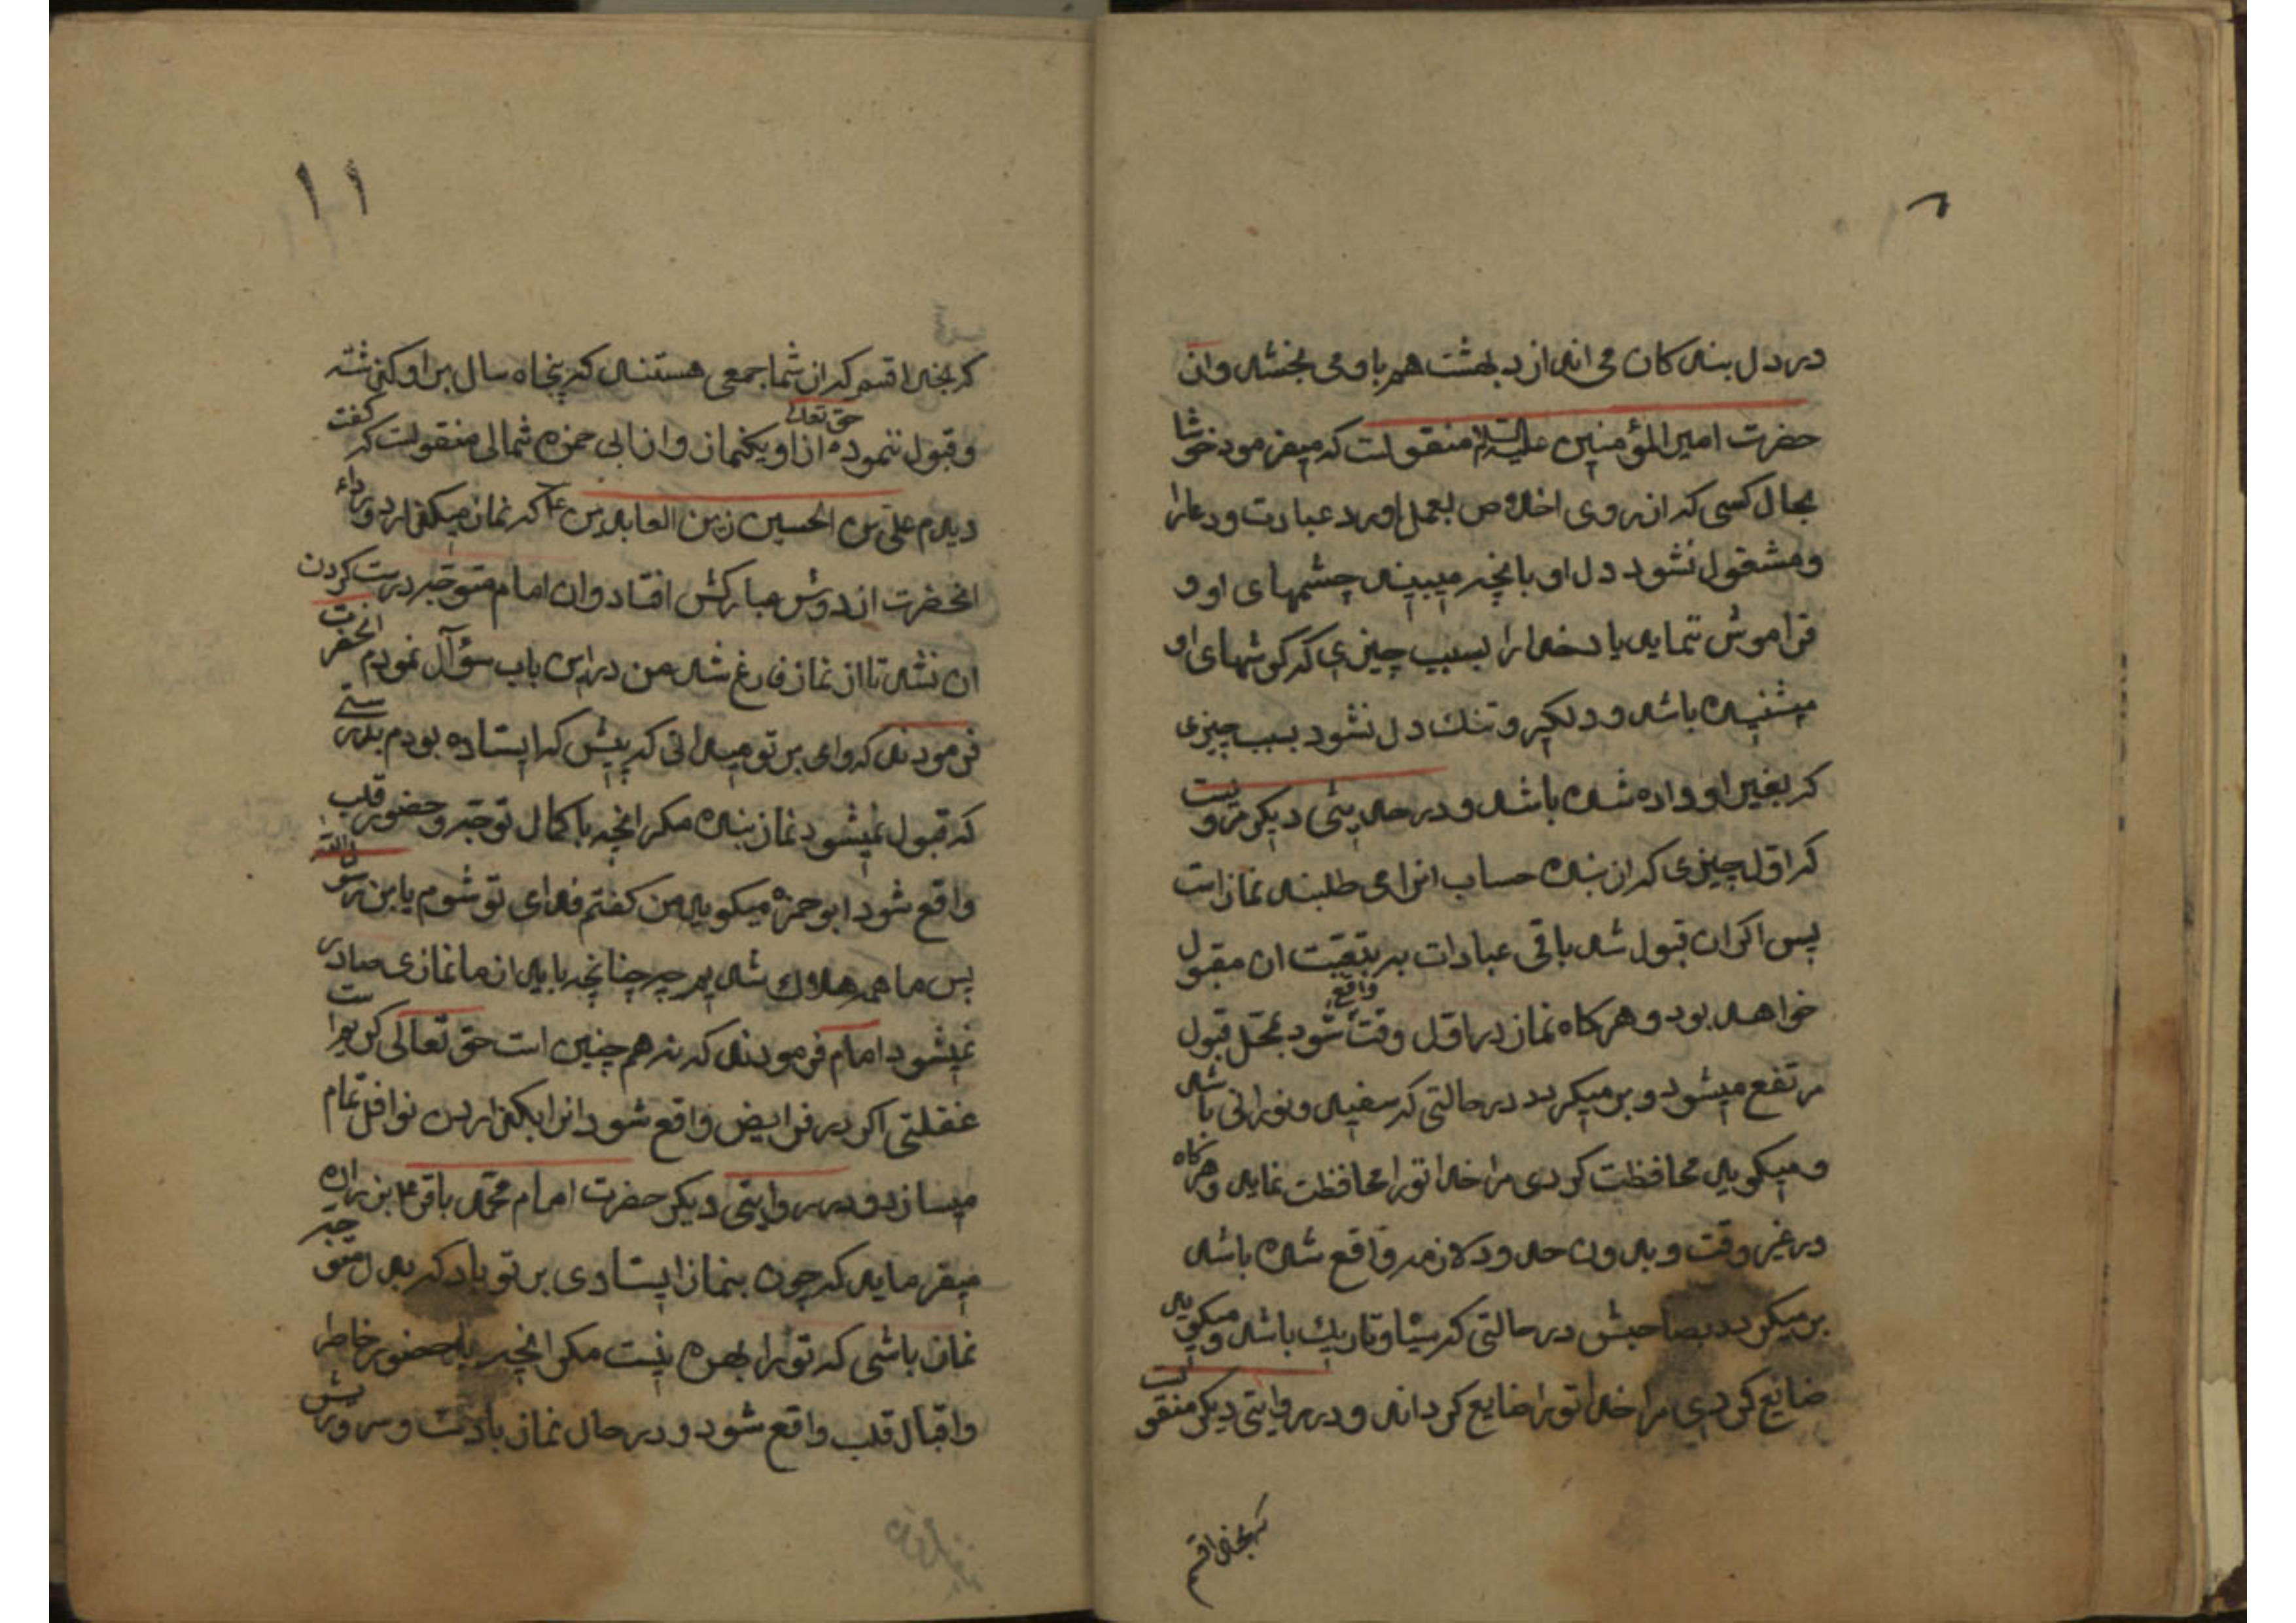 در دل بنده کان می اندازد بهشت هم باو می بخشد و از
حضرت امیر المؤمنین علیه السلام منقولست که میفرمود خوشا
بحال کسی که از روی اخلاص بعمل اورد عبادت و دعا را
و مشغول نشود دل او بانچه میبیند چشمهای او و
فراموش ننماید یاد خدا را بسبب چیزی که کوشهای او
میشنیده باشد و دلکیر و تنک دل نشود بسبب چیزی
که بغیر او داده شده باشد و در حدیثی دیکر مرویست
که اول چیزی که از بنده حساب انرا می طلبند نماز است
پس اکر ان قبول شد باقی عبادات به بتعیت ان مقبول
خواهد بود و هر کاه نماز در اول وقت واقع شود بمحل قبول
مرتفع میشود و بر میکردد در حالتی که سفید و نورانی باشد
و میکوید محافظت کردی مرا خدا تو را محافظت نماید و هر کاه
در غیر وقت و بدون حدود لازمه واقع شده باشد
بر میکردد بصاحبش در حالتی که سیاه و تاریک باشد و میکوید
ضایع کردی مرا خدا تو را ضایع کرداند و در روایتی دیکر منقولست
که بخدا قسم
۱۱
که بخدا قسم که از شما جمعی هستند که پنجاه سال بر او کذشته
و قبول ننموده حق تعالی از او یکنماز و از ابی حمزه ثمالی منقولست که کفت
دیدم علی بن الحسین زین العابدین ع را که نماز میکذارد و رداء
انحضرت از دوش مبارکش افتاد و ان امام متوجه درست کردن
ان نشد تا از نماز فارغ شد من در این باب سؤآل نمودم انحضرت
فرمودند که وای بر تو میدانی که پیش که ایستاده بودم بدرستی
که قبول نمیشود نماز بنده مکر انچه با کمال توجه و حضور قلب
واقع شود ابو حمزه میکوید من کفتم فدای تو شوم یابن رسول الله
پس ما همه هلاک شدیم چه چنانچه باید از ما نمازی صادر
نمیشود امام فرمودند که نه همچنین است حق تعالی کریم است هر
غفلتی اکر در فرایض واقع شود انرا بکذاردن نوافل تمام
میسازد و در روایتی دیکر حضرت امام محمد باقر ع بزراره
میفرماید که چون بنماز ایستادی بر تو باد که بدل متوجه
نماز باشی که تو را بهره نیست مکر انچه با حضور خاطر
و اقبال قلب واقع شود و در حال نماز با دست و سر و ریش